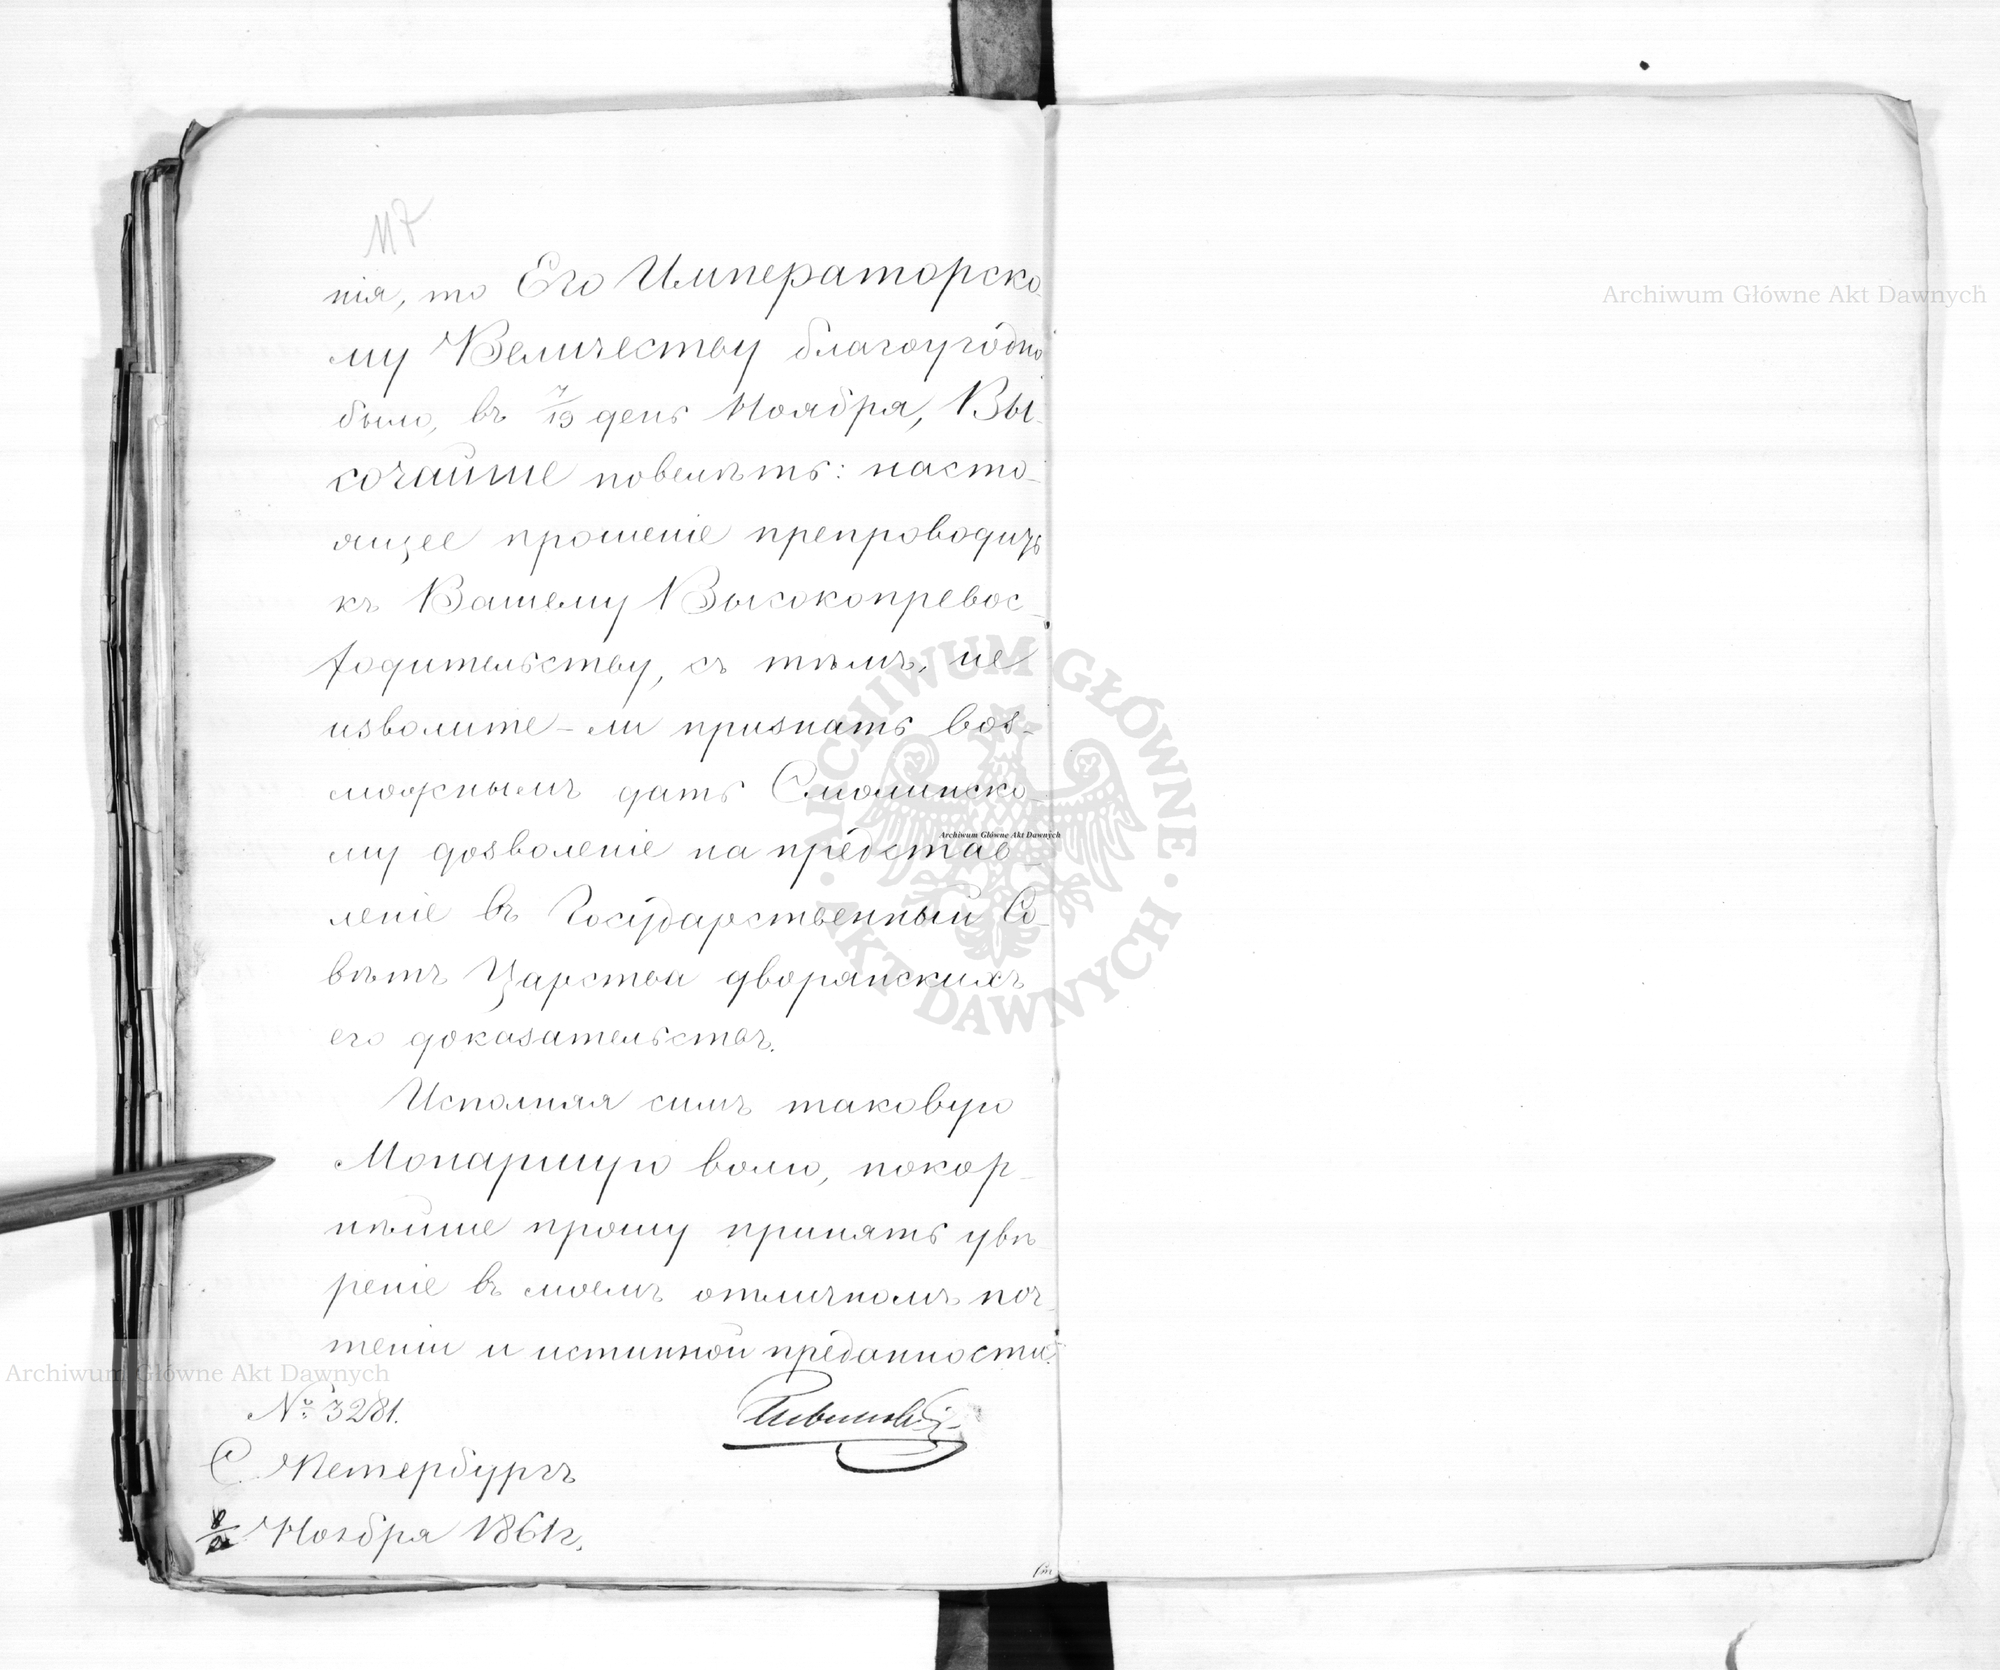 117
нія, то Его Императорско-
му Величеству благоугодно
было, въ 7/19 день Ноября, Вы-
сочайше повелѣть: насто-
ящее прошеніе препроводить
къ Вашему Высокопревос-
ходительству, съ тѣмъ, не
изволите-ли признать воз-
можнымъ дать Смолинско-
му дозволеніе на представ-
леніе въ Государственный Со-
вѣтъ Царства дворянскихъ
его доказательствъ.
Исполняя симъ таковую
Монаршую волю, покор-
нѣйше прошу принять увѣ-
реніе въ моемъ отличномъ поч-
теніи и истинной преданности.
№ 3281.
С. Петербургъ
Ноября 1861 г.
Archiwum Główne Akt Dawnych
Archiwum Główne Akt Dawnych
Archiwum Główne Akt Dawnych
ARCHIWUM GŁÓWNE · AKT DAWNYCH ·